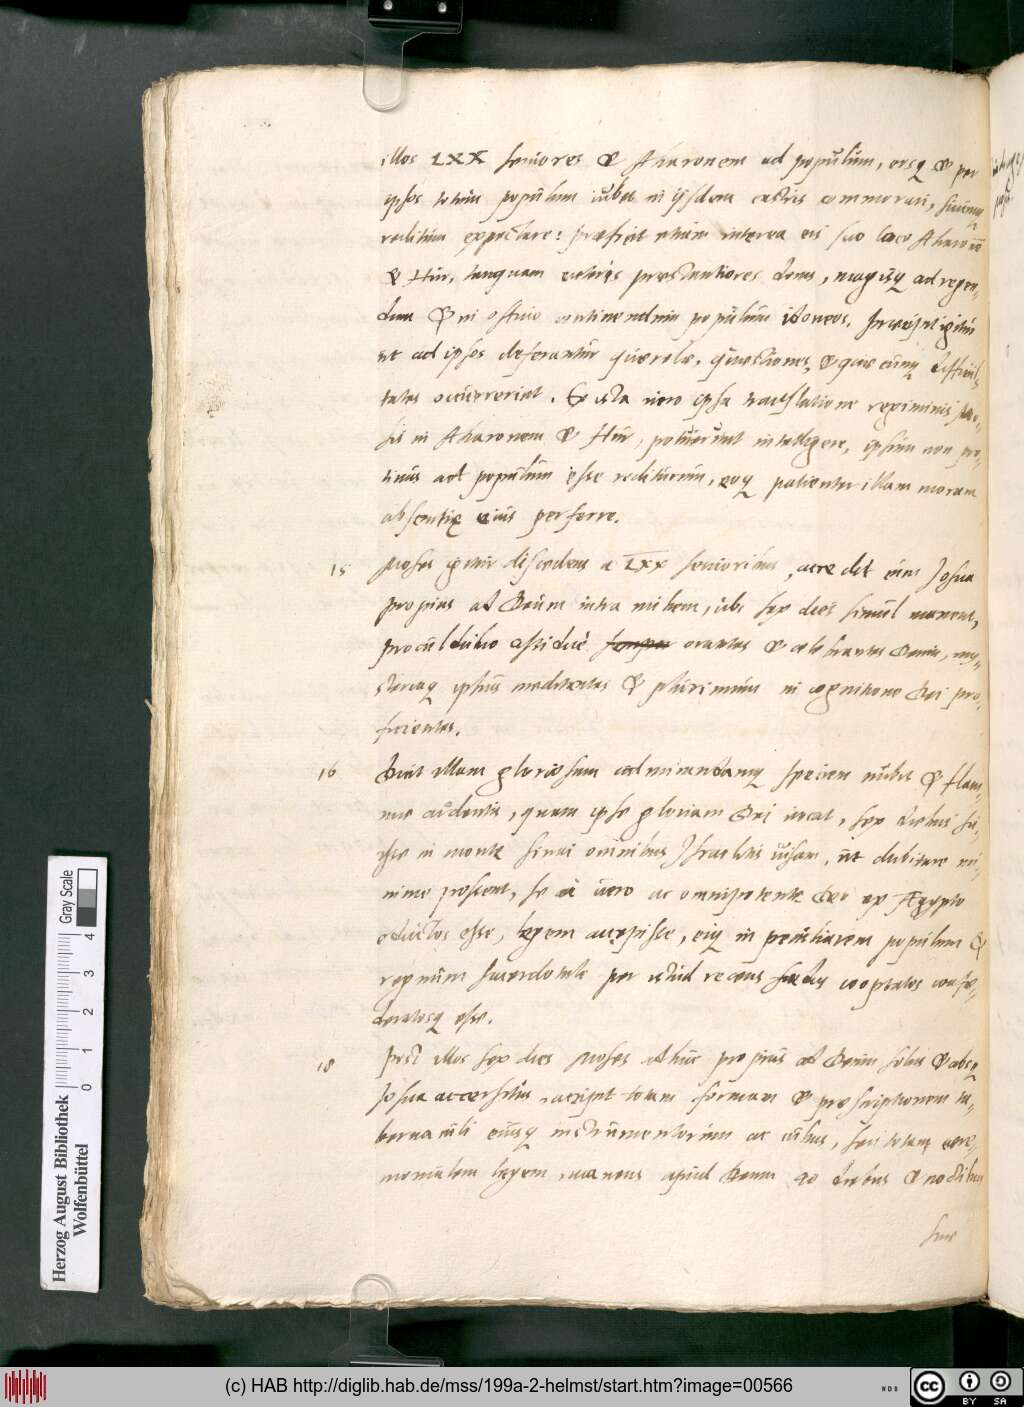 illos LXX seniores & Aharonem ad populum, eosq & per
ipsos totum populum iubet in ijsdem castris commorari, suumq
reditum expectare: praeficit etiam interea eis suo loco Aharonē
& Hur, tanquam caeteris praestantiores denis, magisq ad regen-
dum & in officio continendum populum idoneos. Praecipit igitur
ut ad ipsos deferantur querelae, quaestiones, & quaecunq difficul-
tates occurrerint. Ex ista vero ipsa translatione regiminis Mo-
sis in Aharonem & Hur, potuerunt intelligere, ipsum non pro-
tinus ad populum esse rediturum, eoq patienter illam moram
absentię eius perferre.
15 Moses igitur discedens a LXX senioribus, accedit cum Josua
propius ad Deum intra nubem, ubi sex dies simul manent,
procul dubio assidue orantes & celebrantes Deum, my-
steriaq ipsius meditantes & plurimum in cognitione Dei pro-
ficientes.
16 Dicit illam gloriosam admirandamq speciem nubis & flam-
mae ardentis, quam ipse gloriam Dei vocat, sex diebus fu-
isse in monte Sinai omnibus Israelitis visam, ut dubitare mi-
nime possent, se a vero ac omnipotente Deo ex Ægypto
eductos esse, legem accepisse, eiq in peculiarem populum &
regnum sacerdotale per istud recens foedus cooptatos confoe-
deratosq esse.
18 Post illos sex dies Moses adhuc propius ad Deum solus & absq
Josua accersitus, accipit totam formam & praescriptionem ta-
bernaculi eiusq instrumentorum ac cultus, seu totam cere-
monialem legem, manens apud Deum 40 diebus & noctibus
sine
Herzog August Bibliothek
Wolfenbüttel
0 1 2 3 4
Gray Scale
(c) HAB http://diglib.hab.de/mss/199a-2-helmst/start.htm?image=00566
cc BY SA